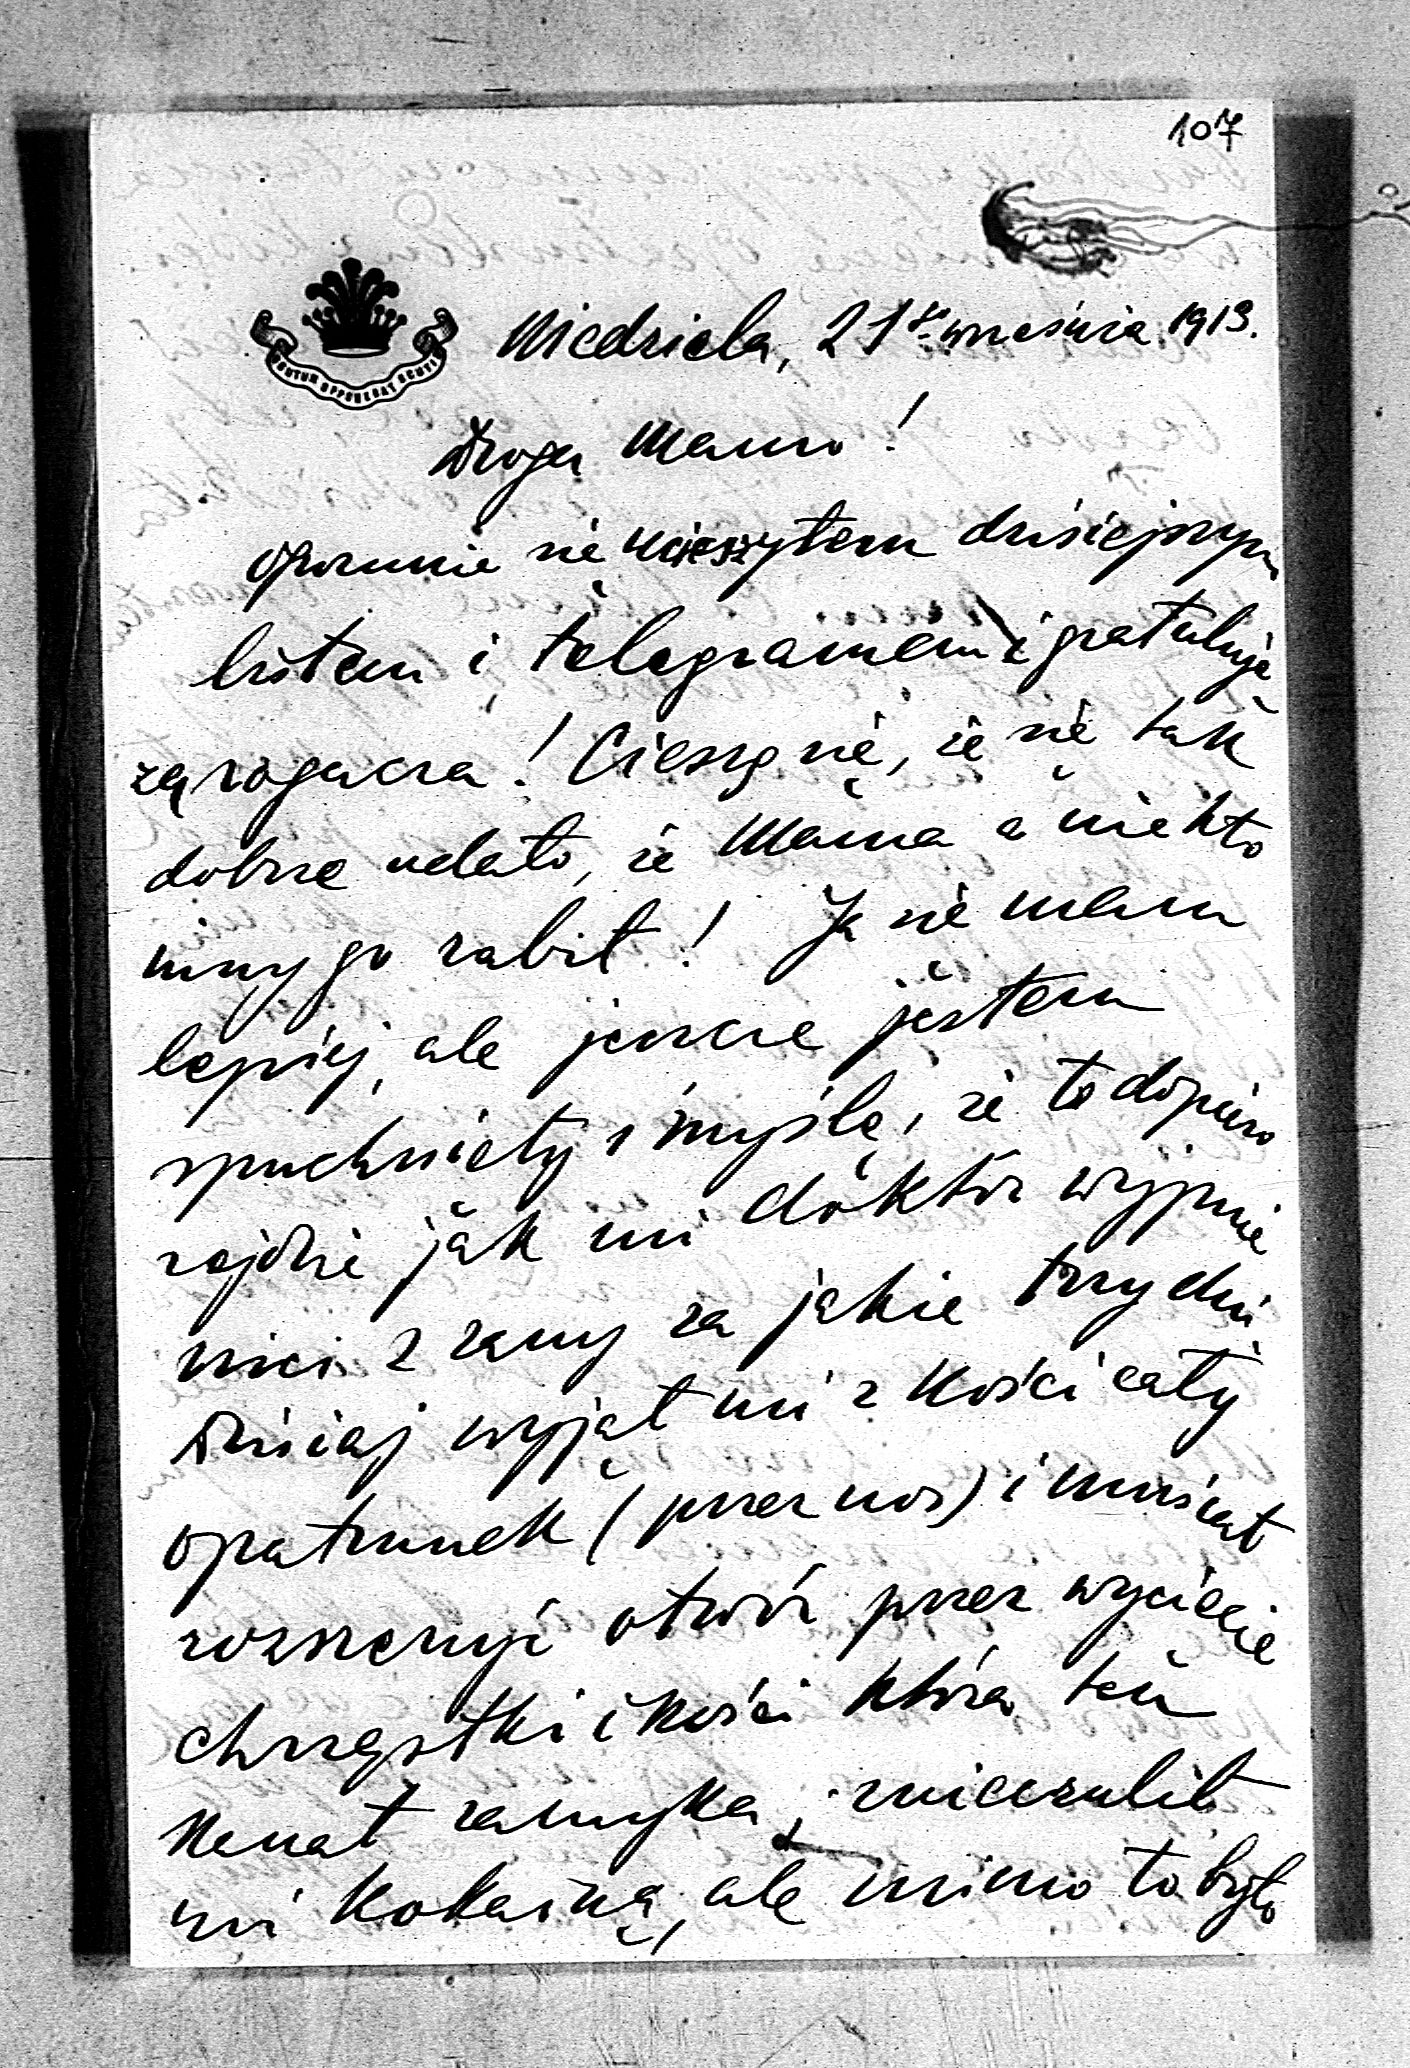 107
Niedziela, 21go września 1913.
Droga Mamo!
Ogromnie się ucieszyłem dzisiejszym
listem i telegramem i gratuluję
za rogacza! Cieszę się, że się tak
dobrze udało, że Mama a nie kto
inny go zabił! Ja się mam
lepiej, ale jeszcze jestem
spuchnięty i myślę, że to dopiero
zejdzie jak mi doktór wyjmie
nici z rany za jakie trzy dni.
Dzisiaj wyjął mi z kości cały
opatrunek (przez nos) i musiał
rozszerzyć otwór przez wycięcie
chrząstki i kości która ten
kanał zamyka; znieczulił
mi kokainą, ale mimo to było